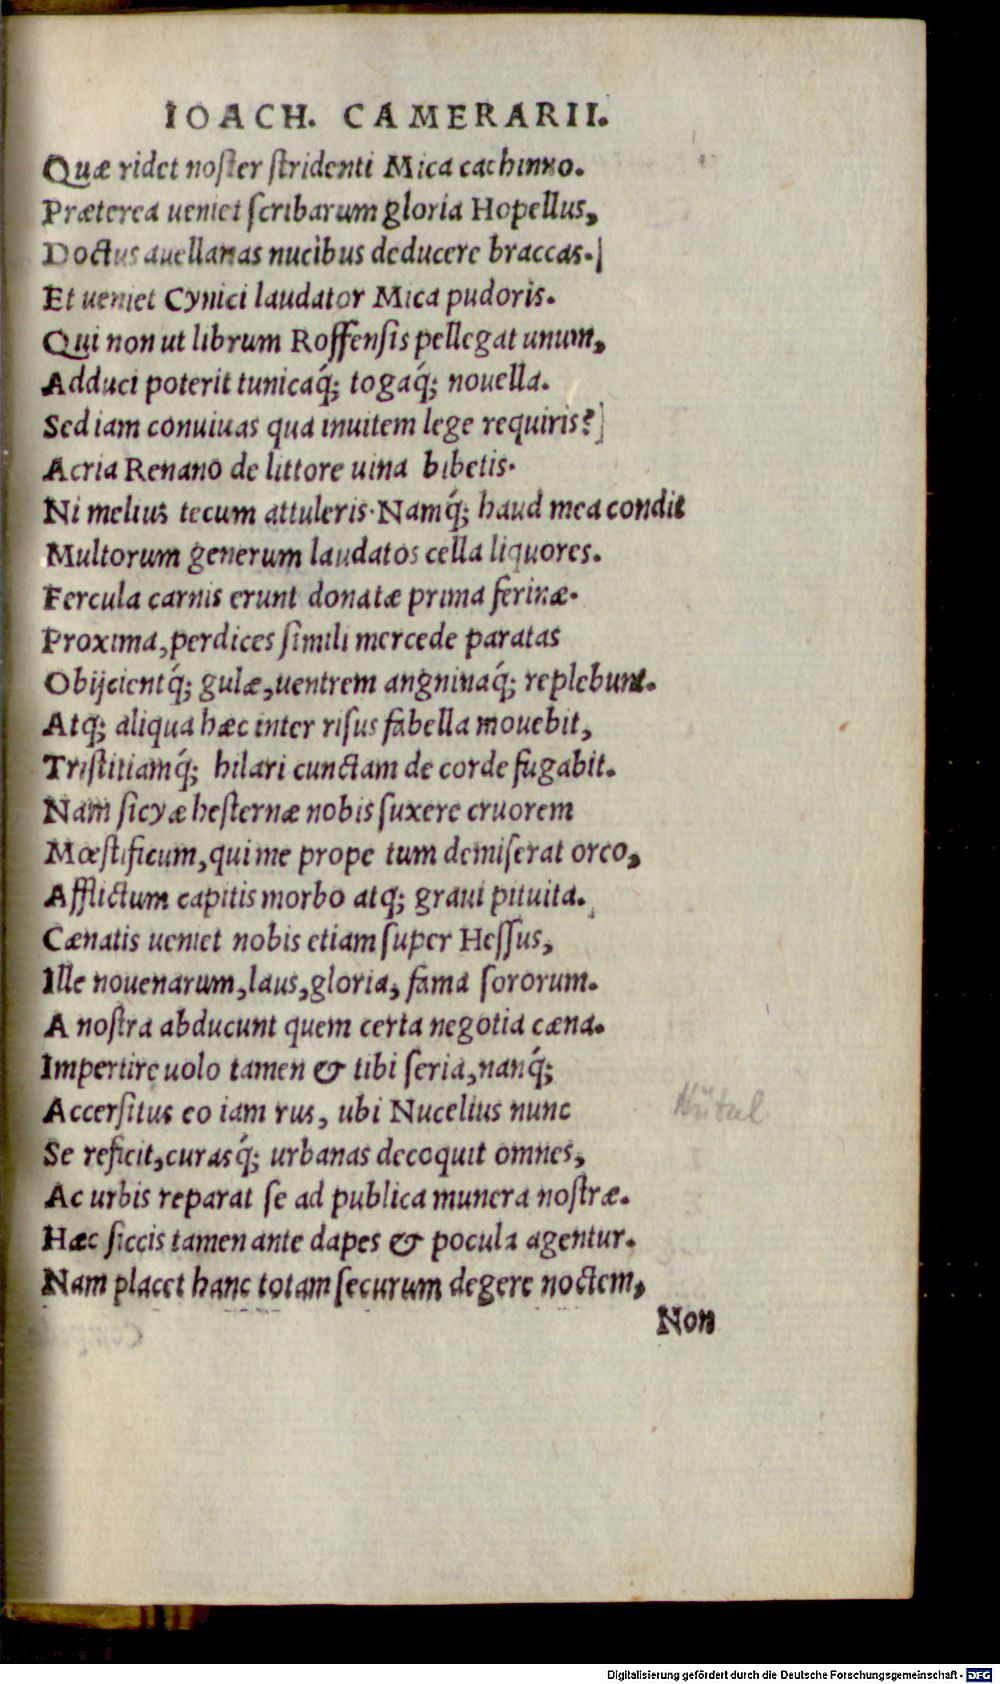 IOACH. CAMERARII.
Quæ ridet noſter ſtridenti Mica cachinno.
Præterea ueniet ſcribarum gloria Hopellus,
Doctus auellanas nucibus deducere braccas.
Et ueniet Cynici laudator Mica pudoris.
Qui non ut librum Roffenſis pellegat unum,
Adduci poterit tunicaq́; togaq́; nouella.
Sed iam conuiuas qua inuitem lege requiris?
Acria Renano de littore uina bibetis.
Ni melius tecum attuleris. Namq́; haud mea condit
Multorum generum laudatos cella liquores.
Fercula carnis erunt donatæ prima ferinæ.
Proxima, perdices ſimili mercede paratas
Obijcientq́; gulæ, uentrem angninaq́; replebunt.
Atq; aliqua hæc inter riſus fabella mouebit,
Triſtitiamq́; hilari cunctam de corde fugabit.
Nam ſicyæ heſternæ nobis ſuxere cruorem
Mœſtificum, qui me prope tum demiſerat orco,
Afflictum capitis morbo atq; graui pituita.
Cænatis ueniet nobis etiam ſuper Heſſus,
Ille nouenarum, laus, gloria, fama ſororum.
A noſtra abducunt quem certa negotia cæna.
Impertire uolo tamen & tibi ſeria, nanq́;
Accerſitus eo iam rus, ubi Nucelius nunc
Se reficit, curasq́; urbanas decoquit omnes,
Ac urbis reparat ſe ad publica munera noſtræ.
Hæc ſiccis tamen ante dapes & pocula agentur.
Nam placet hanc totam ſecurum degere noctem,
Non
Digitalisierung gefördert durch die Deutsche Forschungsgemeinschaft - DFG